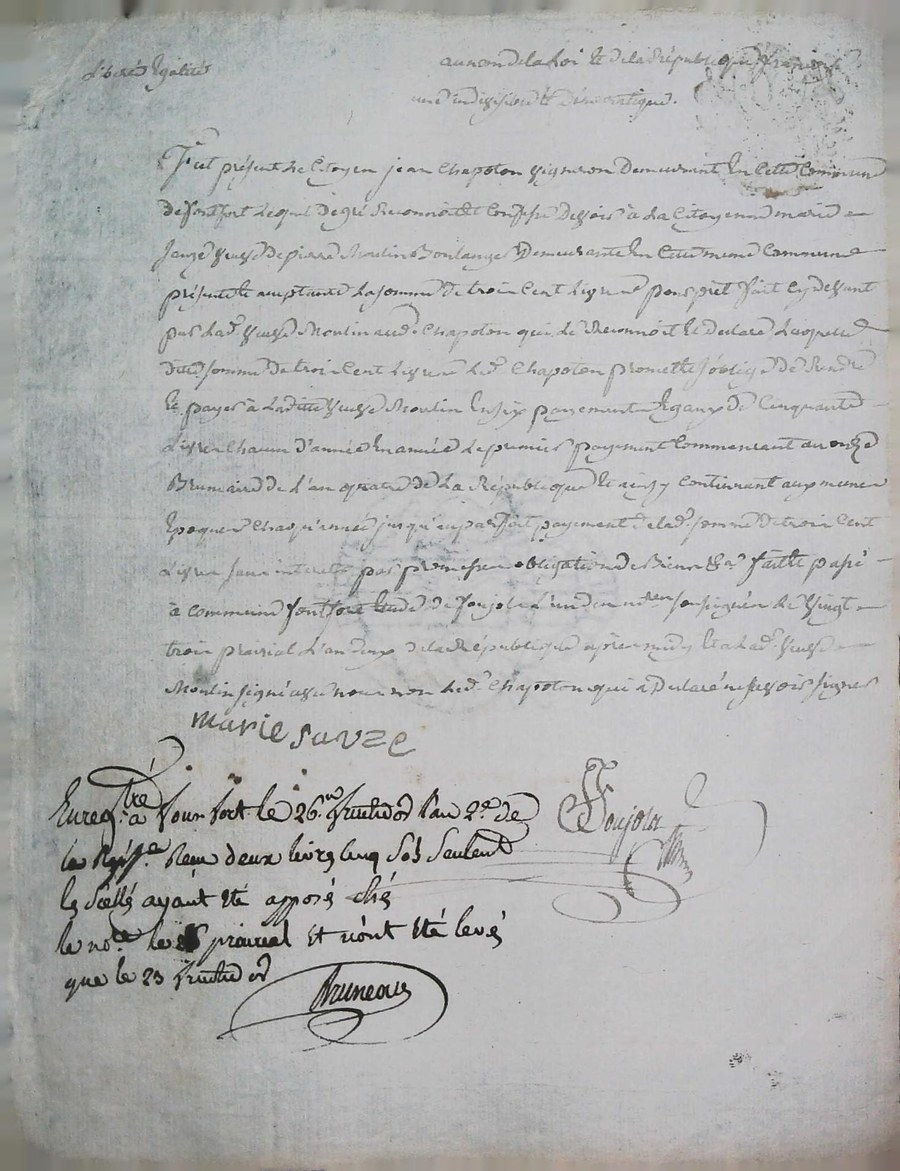 Liberté Egalité
au nom de la Loi Et de la République française
une indivisible Et Démocratique.
Fut présent le Citoyen jean Chapoton vigneron Demeurant En Cette Commune
de fontfort Lequel De gré Reconnoit Et Confesse Devoir à La Citoyenne marie
Sauzé veuve De pierre Moulin Boulanger Demeurante En Cette meme Commune
présente Et acceptante La somme De trois Cent Livres pour prêt fait Cy devant
par Lad.e veuve Moulin aud. Chapoton qui Le Reconnoit Et Declare Laquelle
ditte somme De trois Cent Livres Led. Chapoton promet Et s'oblige De Rendre
Et payer à Laditte veuve Moulin En six payements Egaux De Cinquante
Livres Chacun d'année En année Le premier payement Commencant au onze
Brumaire de L'an quatre de La République Et ainsy Continuant aux memes
Epoques Chaqu'année jusqu'au parfait payement de lad. somme De trois Cent
Livres sans interets par promesse obligation de Biens &a. fait Et passé
à commune fontfort Etude De Soujols L'un des nres soussignés Le vingt
trois prairial L'an deux de la République après midy Et a Lad. veuve
Moulin signé avec nous non Led. Chapoton qui a Declaré ne sçavoir signer
marie sauze
Enregtré à Fontfort le 26. fructidor l'an 2.e de
la Rép.e Reçu deux livres cinq Sols Seulemt
les Scellés ayant été apposés chés
le nore. le prairial et n'ont été levés
que le 23 fructidor
Soujols
Bruneau